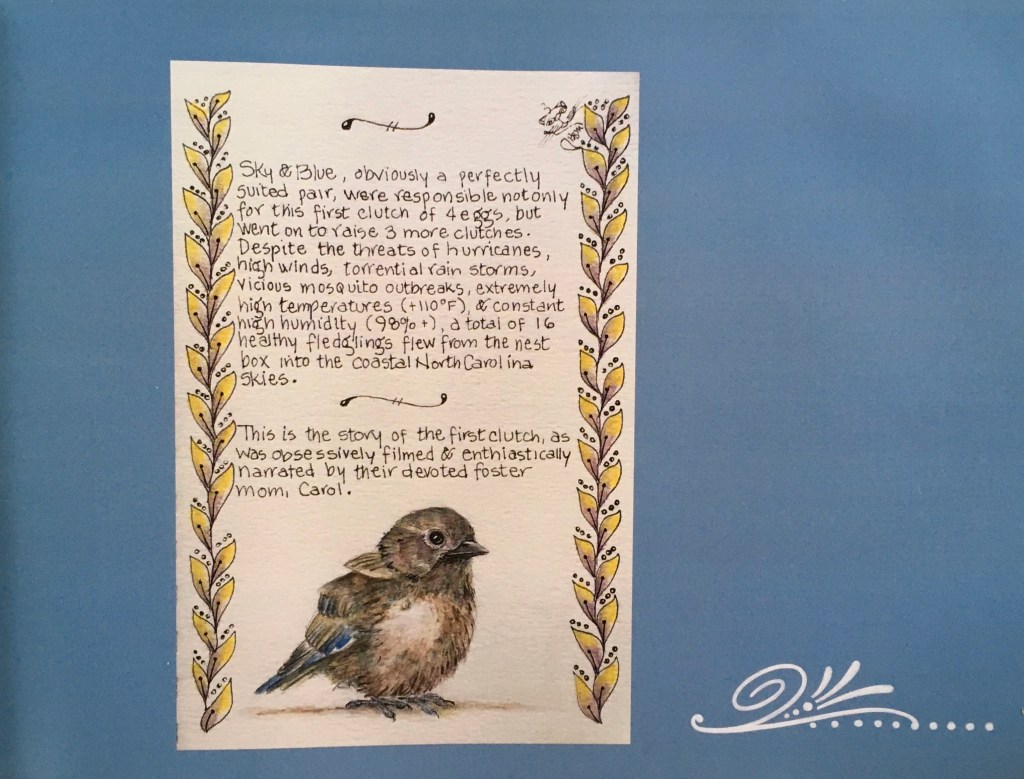 Sky & Blue, obviously a perfectly
suited pair, were responsible not only
for this first clutch of 4 eggs, but
went on to raise 3 more clutches.
Despite the threats of hurricanes,
high winds, torrential rain storms,
vicious mosquito outbreaks, extremely
high temperatures (+110°F), & constant
high humidity (98%+), a total of 16
healthy fledglings flew from the nest
box into the coastal North Carolina
skies.
This is the story of the first clutch, as
was obsessively filmed & enthiastically
narrated by their devoted foster
mom, Carol.